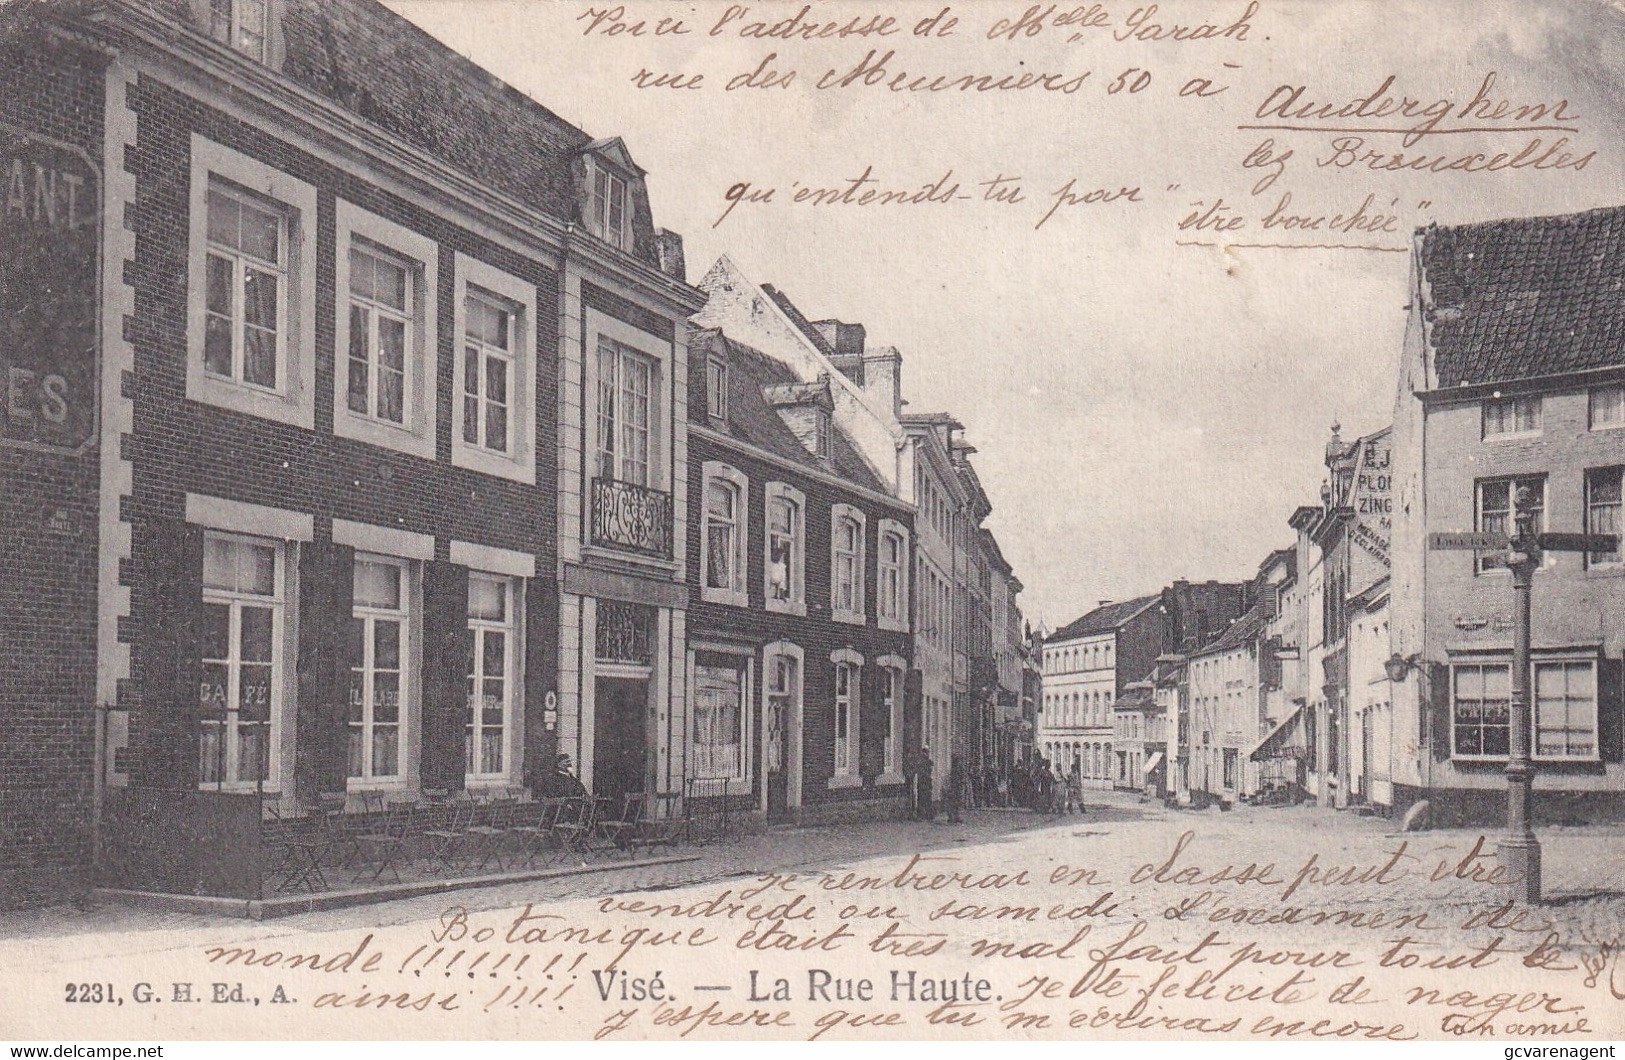 Voici l'adresse de Melle Sarah.
rue des Meuniers 50 à
Auderghem
lez Bruxelles
qu'entends-tu par "
être bouchée"
ANT
ES
E.J
PLOM
ZING
CAFÉ
CAFÉ
Je rentrerai en classe peut-être
vendredi ou samedi. L'examen de
Botanique était très mal fait pour tout le
monde !!!!!!!!
2231, G. H. Ed., A.
ainsi !!!!
Visé. — La Rue Haute.
Je te felicite de nager
J'espère que tu m'écriras encore
ton amie
Léa
©DELCAMPE.NET
gcvarenagent